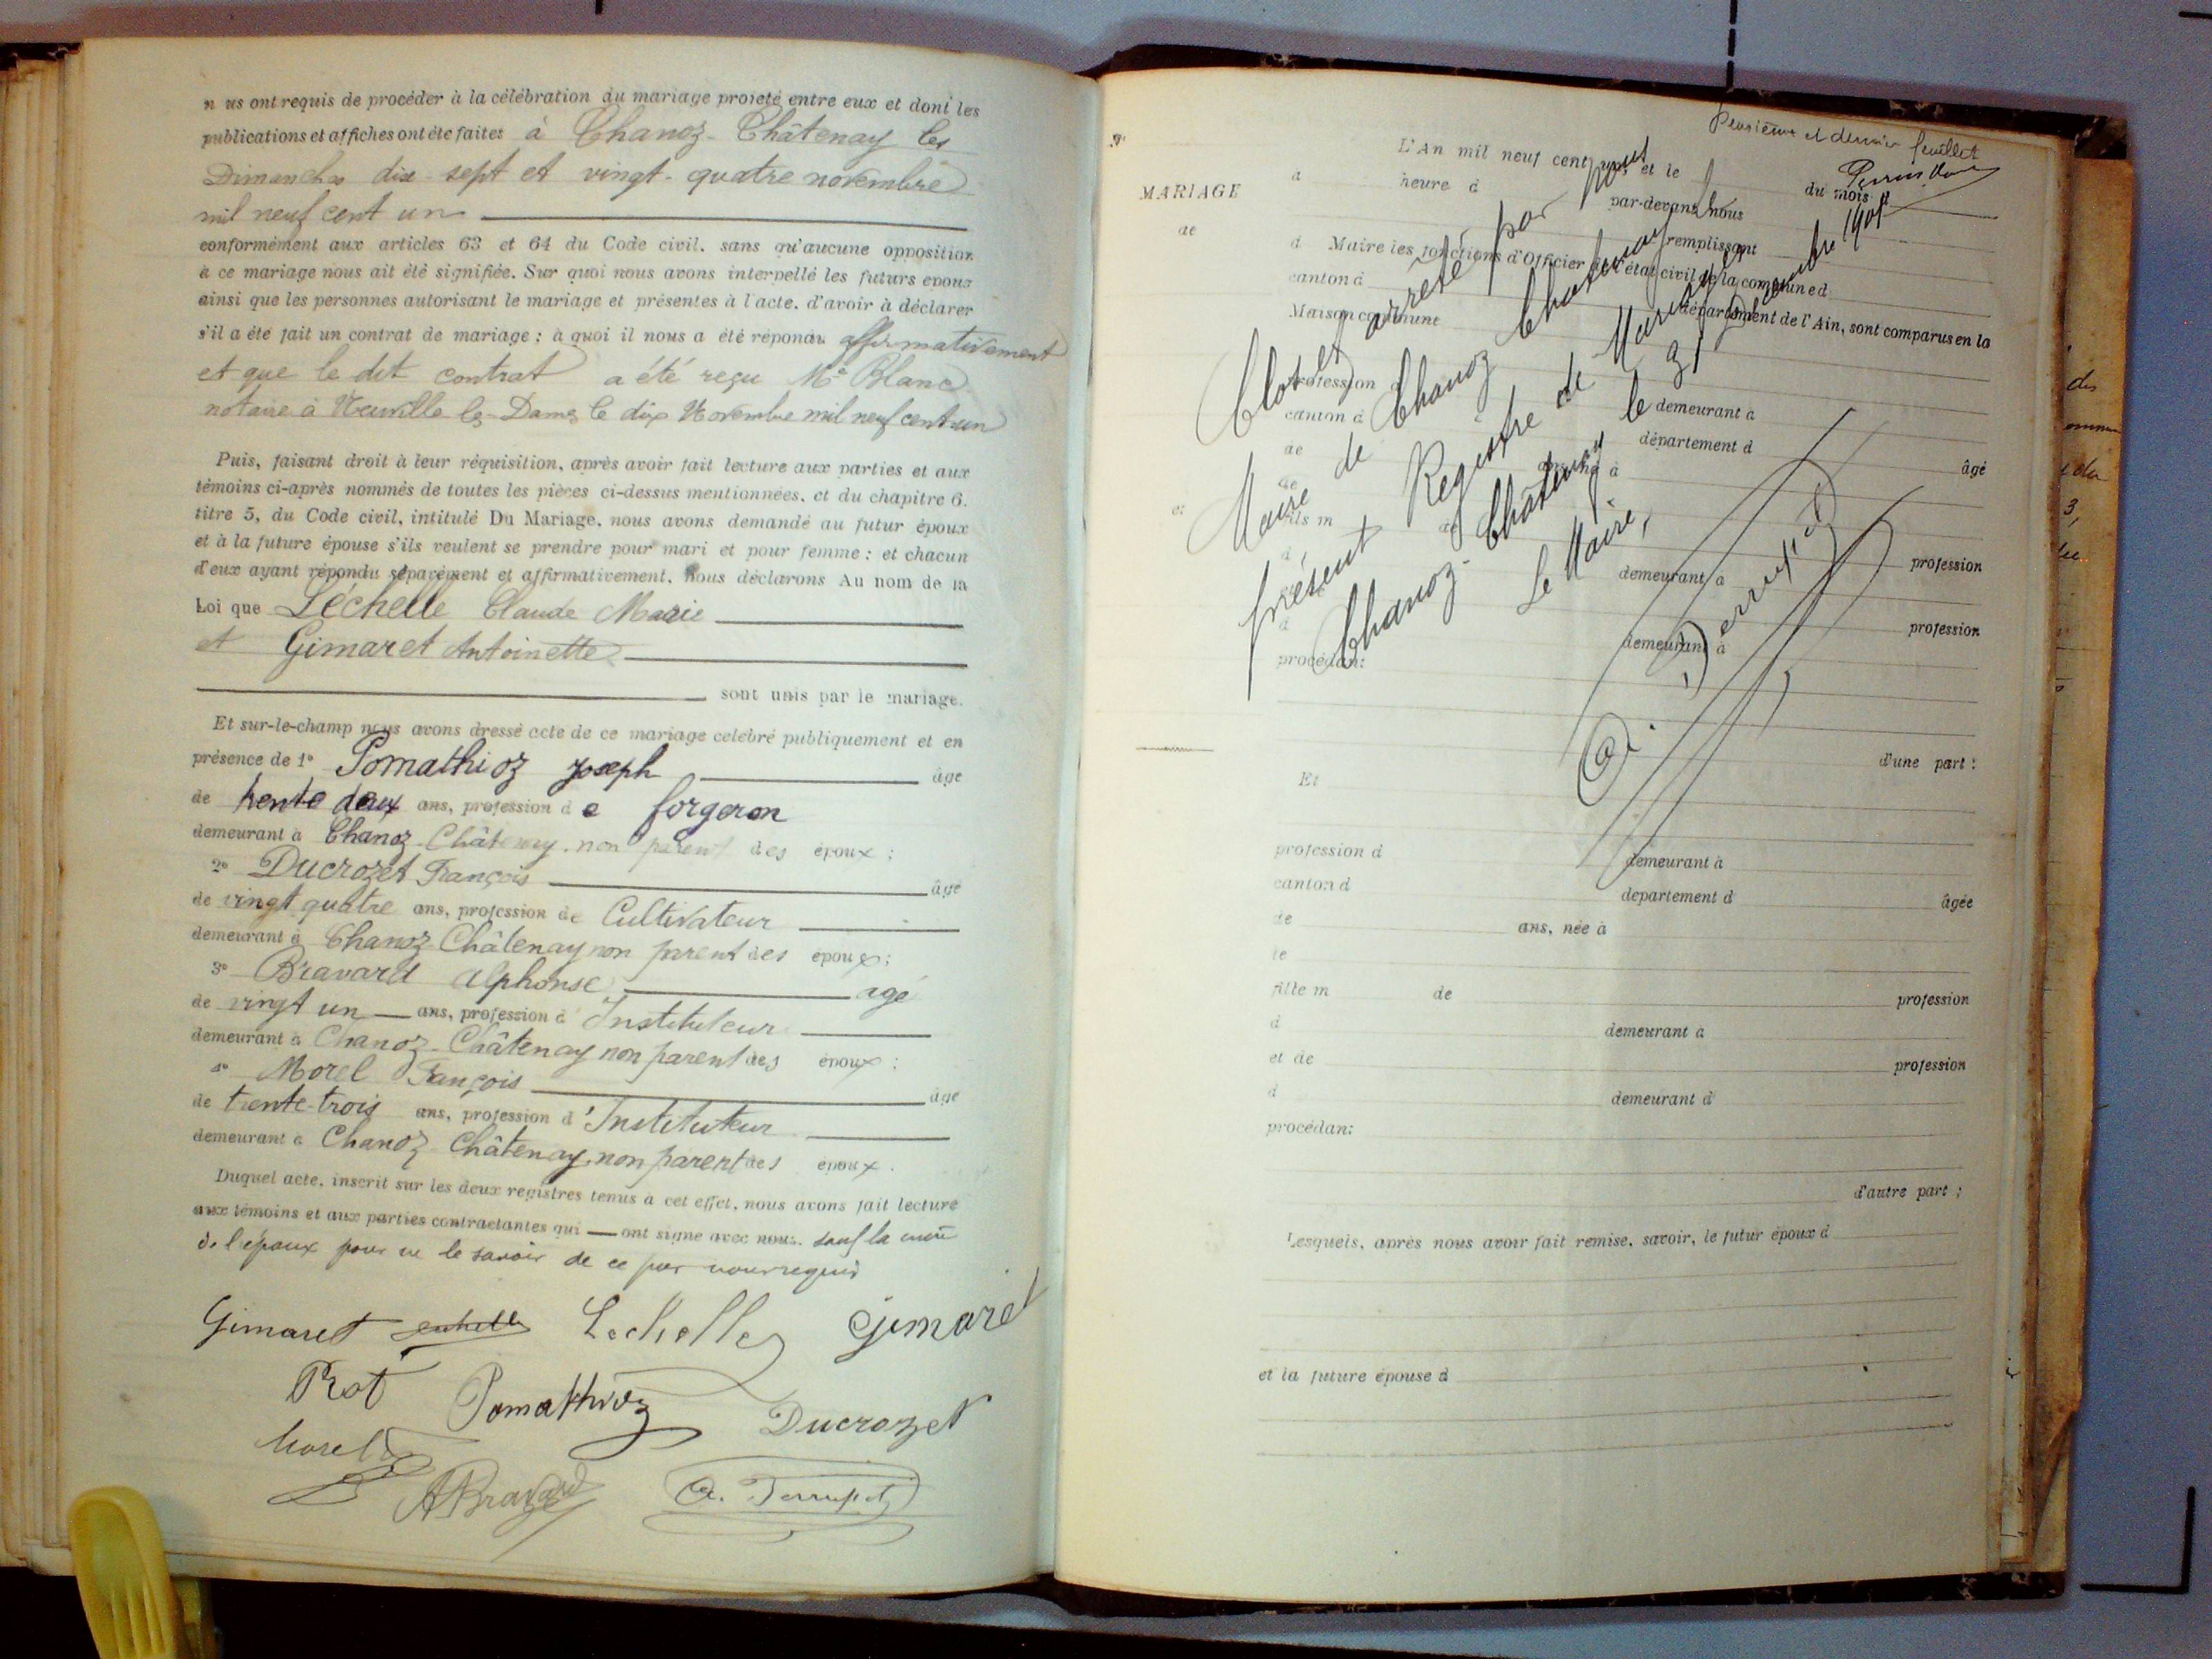 n us ont requis de procéder à la célébration du mariage projeté entre eux et dont les
publications et affiches ont été faites à Chanoz-Châtenay les
Dimanches dix-sept et vingt-quatre novembre
mil neuf cent un
conformément aux articles 63 et 64 du Code civil, sans qu'aucune opposition
à ce mariage nous ait été signifiée. Sur quoi nous avons interpellé les futurs epoux
ainsi que les personnes autorisant le mariage et présentes à l'acte, d'avoir à déclarer
s'il a été fait un contrat de mariage ; à quoi il nous a été répondu affirmativement
et que le dit contrat a été reçu Me Blanc
notaire à Neuville les Dames le dix Novembre mil neuf cent un
Puis, faisant droit à leur réquisition, après avoir fait lecture aux parties et aux
témoins ci-après nommés de toutes les pièces ci-dessus mentionnées, et du chapitre 6,
titre 5, du Code civil, intitulé Du Mariage, nous avons demandé au futur époux
et à la future épouse s'ils veulent se prendre pour mari et pour femme ; et chacun
d'eux ayant répondu séparément et affirmativement, nous déclarons Au nom de la
Loi que Léchelle Claude Marie
et Gimaret Antoinette
sont unis par le mariage.
Et sur-le-champ nous avons dressé acte de ce mariage célébré publiquement et en
présence de 1° Pomathioz Joseph âgé
de trente deux ans, profession de forgeron
demeurant à Chanoz-Châtenay, non parent des époux ;
2° Ducrozet François âgé
de vingt quatre ans, profession de Cultivateur
demeurant à Chanoz-Châtenay non parent des époux ;
3° Bravard Alphonse âgé
de vingt un ans, profession d'Instituteur
demeurant à Chanoz-Châtenay non parent des époux ;
4° Morel François âgé
de trente-trois ans, profession d'Instituteur
demeurant à Chanoz-Châtenay, non parent des époux.
Duquel acte, inscrit sur les deux registres tenus à cet effet, nous avons fait lecture
aux témoins et aux parties contractantes qui ont signé avec nous, sauf la mère
de l'époux pour ne le savoir de ce par nous requis
Gimaret Lechelle Gimaret
Prat Pomathioz Ducrozet
Morel
A Bravard
dernier feuillet
N°
MARIAGE
de
et
L'An mil neuf cent et le du mois d
à heure d par-devant nous
d Maire les fonctions d'Officier de l'état civil de la commune d remplissant
canton d département de l'Ain, sont comparus en la
Maison commune
Clos et arrêté par nous
Maire de Chanoz Chatenay
présent Registre de Mariages
Chanoz-Châtenay le 31 Décembre 1901
Le Maire,
profession demeurant à
canton d département d âgé
de
ans, né à
le
fils m de profession
d demeurant à
profession
d demeurant à
procédant
d'une part ;
Et
profession d demeurant à
canton d département d âgée
de ans, née à
le
fille m de profession
d demeurant à
et de profession
d demeurant à
procédant
d'autre part ;
Lesquels, après nous avoir fait remise, savoir, le futur époux d
et la future épouse d